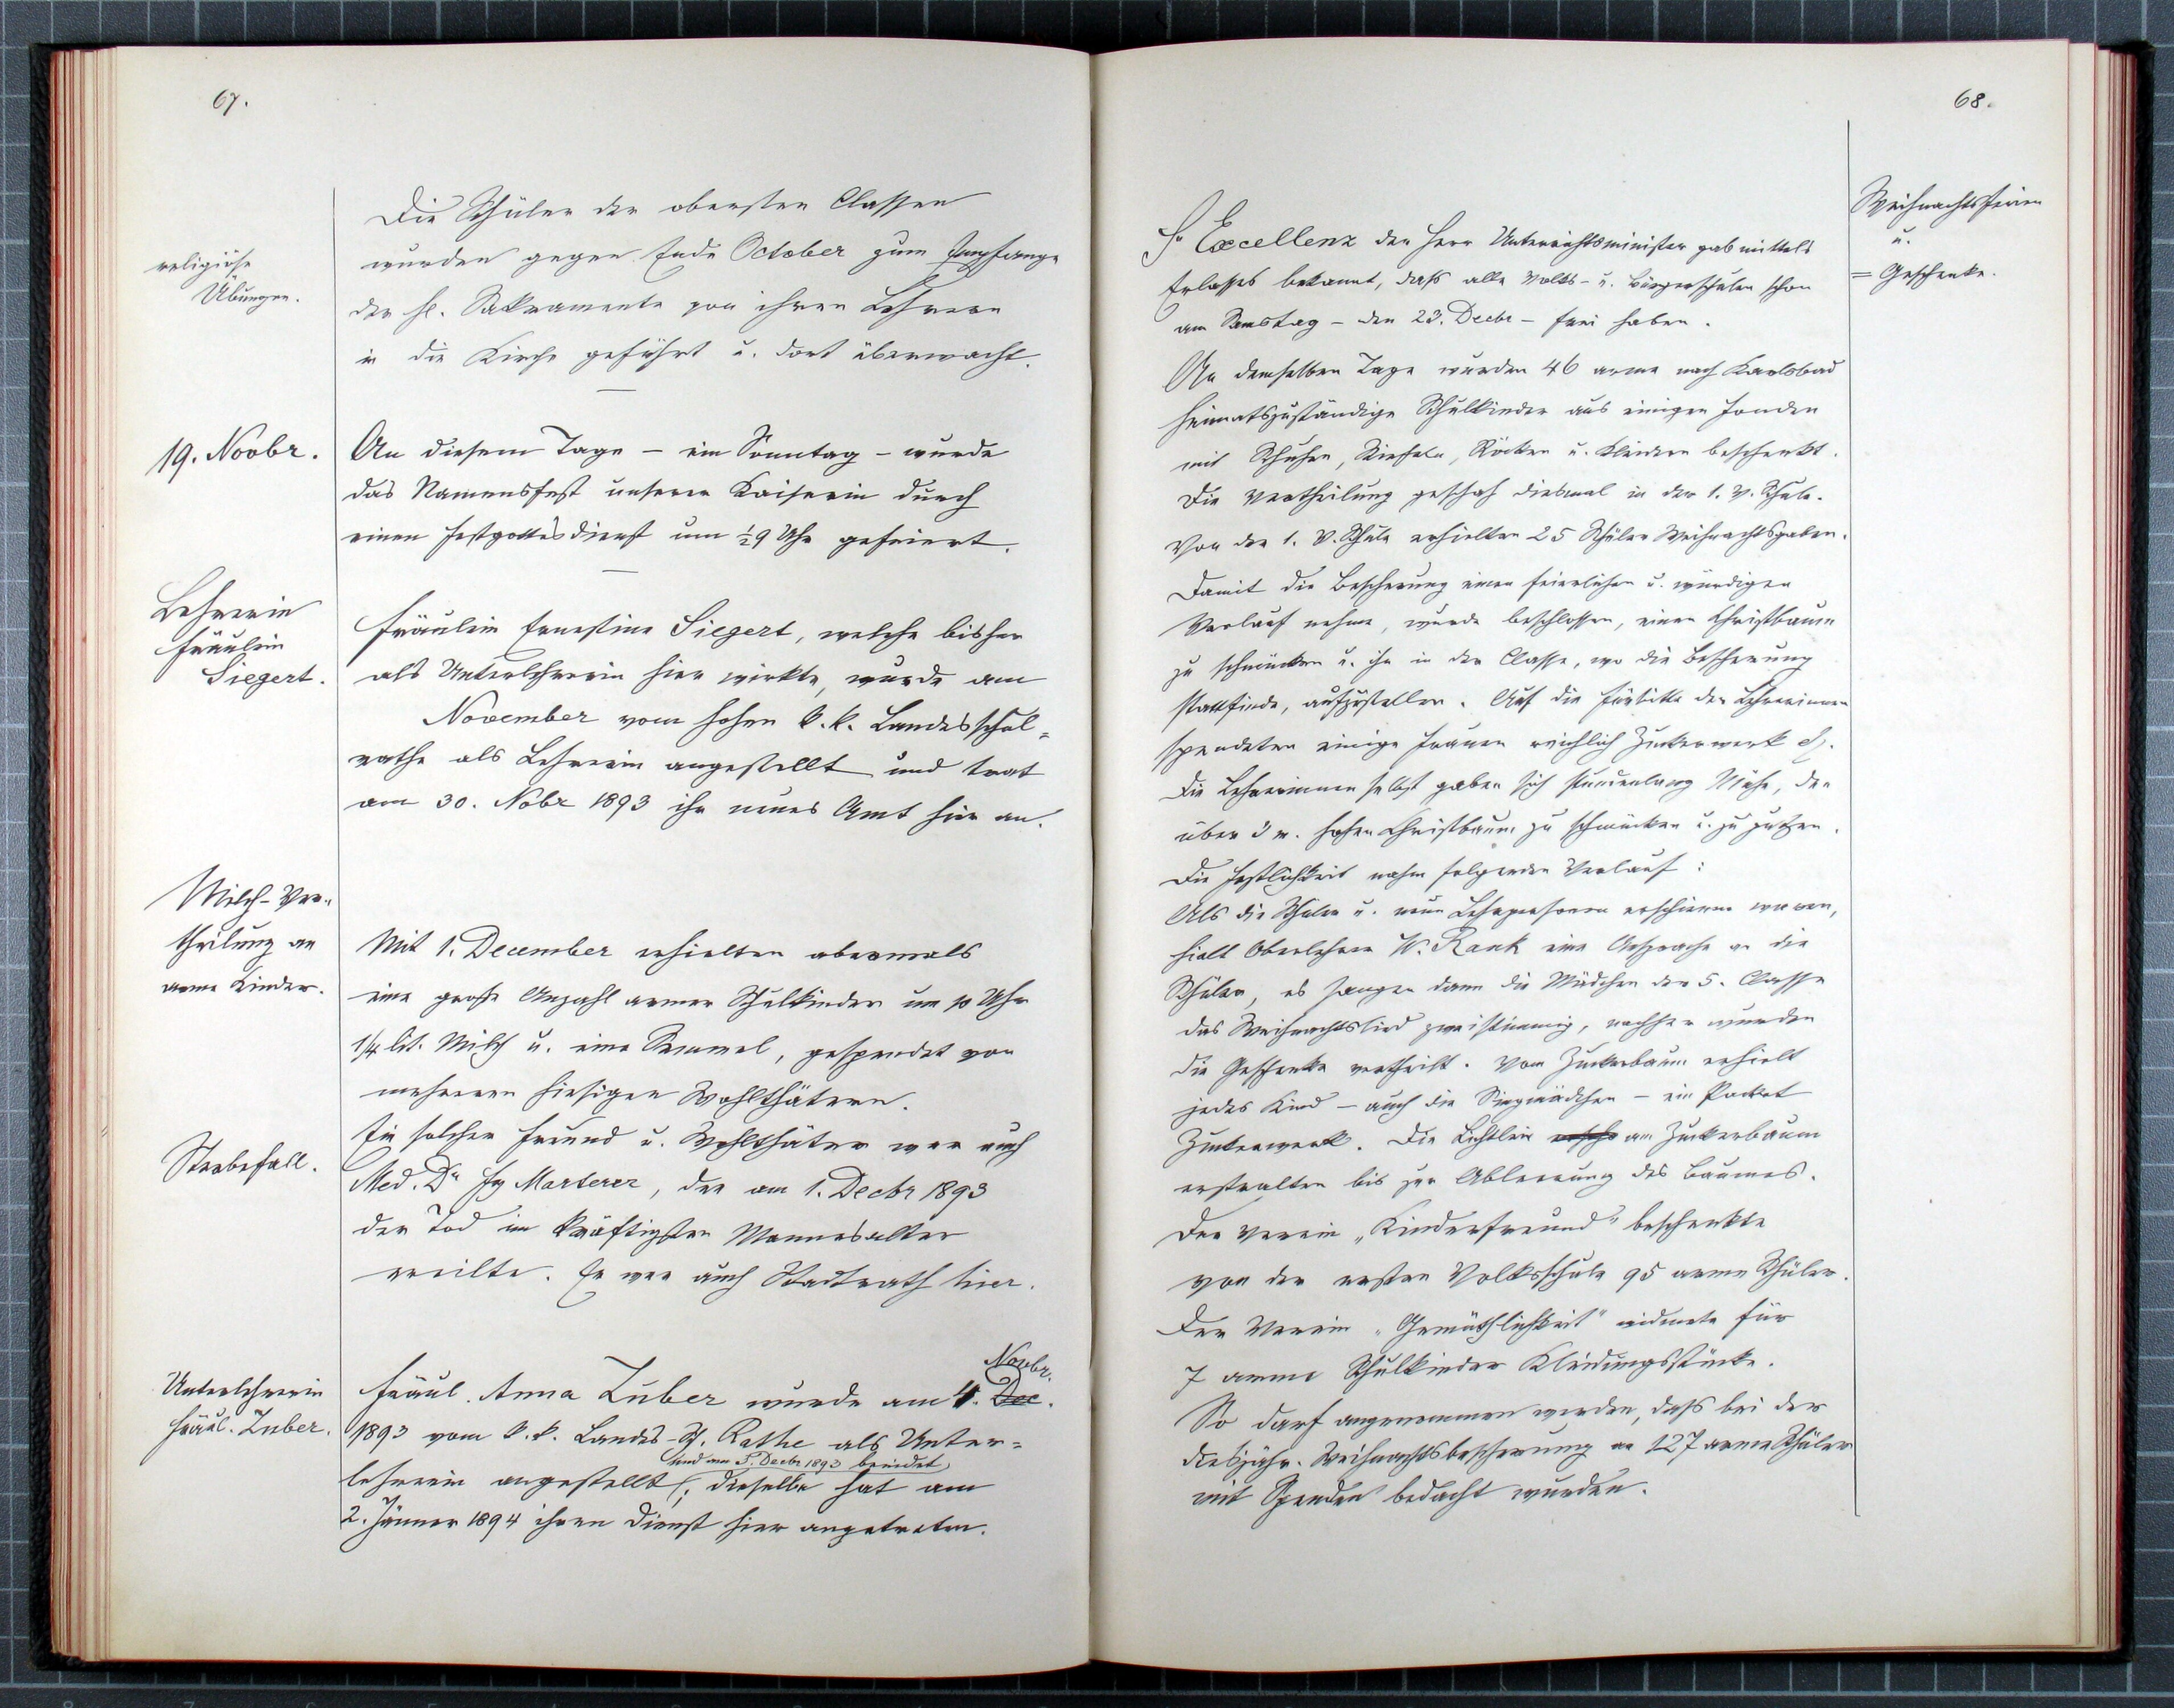 67.
Die Schüler der obersten Classen
religiöse
Übungen.
wurden gegen Ende October zum Empfange
der hl. Sakramente von ihren Lehrern
in die Kirche geführt u. dort überwacht.
19. Novbr.
An diesem Tage – ein Sonntag – wurde
das Namensfest unserer Kaiserin durch
einen Festgottesdienst um ½9 Uhr gefeiert.
Lehrerin
Fräulein
Siegert.
Fräulein Ernestine Siegert, welche bisher
als Unterlehrerin hier wirkte, wurde am
November vom hohen k. k. Landesschul=
rathe als Lehrerin angestellt und trat
am 30. Nobr 1893 ihr neues Amt hier an.
Milch-Ver-
theilung an
arme Kinder.
Mit 1. December erhielten abermals
eine große Anzahl armer Schulkinder um 10 Uhr
1/4 lit. Milch u. eine Semmel, gespendet von
mehreren hiesigen Wohlthätern.
Sterbefall.
Ein solcher Freund u. Wohlthäter war auch
Med. Dr Jg Marterer, der am 1. Decbr 1893
der Tod im kräftigsten Mannesalter
ereilte. Er war auch Stadtrath hier.
Unterlehrerin
Fräul. Zuber.
Novbr.
Fräul. Anna Zuber wurde am 4. Dec.
1893 vom k. k. Landes-Sch. Rathe als Unter=
und am 5. Decbr 1893 beeidet
lehrerin angestellt; dieselbe hat am
2. Jänner 1894 ihren Dienst hier angetreten.
68.
Weihnachtsferien
u.
= Geschenke.
Sr Excellenz der Herr Unterrichtsminister gab mittels
Erlasses bekannt, daß alle Volks- u. Bürgerschulen schon
am Samstag – den 23. Decbr – frei haben.
An demselben Tage wurden 46 arme nach Karlsbad
heimatszuständige Schulkinder aus einigen Fonden
mit Schuhen, Stiefeln, Röcken u. Kleidern beschenkt.
Die Vertheilung geschah diesmal in der 1. V. Schule.
Von der 1. V. Schule erhielten 25 Schüler Weihnachtsgaben.
Damit die Bescherung einen feierlichen u. würdigen
Verlauf nehme, wurde beschlossen, einen Christbaum
zu schmücken u. ihn in der Classe, wo die Bescherung
stattfinde, aufzustellen. Auf die Fürbitte der Lehrerinnen
spendeten einige Frauen reichlich Zuckerwerk etc.
Die Lehrerinnen selbst gaben sich stundenlang Mühe, den
über 3 m. hohen Christbaum zu schmücken u. zu putzen.
Die Festlichkeit nahm folgenden Verlauf:
Als die Schüler u. neun Lehrpersonen erschienen waren,
hielt Oberlehrer W. Rank eine Ansprache an die
Schüler, es sangen dann die Mädchen der 5. Classe
das Weihnachtslied zweistimmig, nachher wurden
die Geschenke vertheilt. Vom Zuckerbaum erhielt
jedes Kind – auch die Singmädchen – ein Packet
Zuckerwerk. Die Lichtlein am Zuckerbaum
erstralten bis zur Ableerung des Baumes.
Der Verein „Kinderfreund“ beschenkte
von der ersten Volksschule 95 arme Schüler.
Der Verein „Gemüthlichkeit“ widmete für
7 arme Schulkinder Kleidungsstücke.
So darf angenommen werden, daß bei der
diesjähr. Weihnachtsbescherung an 127 arme Schüler
mit Spenden bedacht wurden.